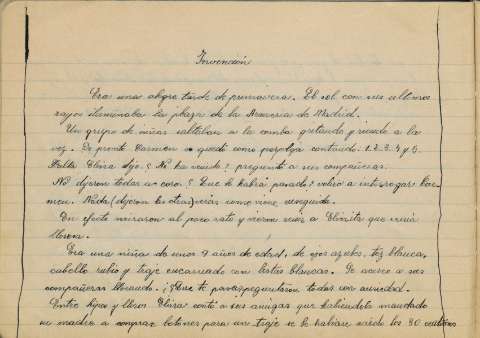 Invención
Era una alegre tarde de primavera. El sol con sus últimos
rayos iluminaba la plaza de la Armería de Madrid.
Un grupo de niñas saltaban a la comba gritando y riendo a la
vez. De pronto Carmen se quedó como perpleja contando: 1. 2. 3. 4 y 5.
Falta Elvira dijo. ¿No ha venido? preguntó a sus compañeras.
No dijeron todas a coro. ¿Que le habrá pasado? volvió a interrogar Car-
men. Nada (dijeron las otras) verás como viene enseguida.
En efecto miraron al poco rato y vieron venir a Elvirita que venía
llorosa.
Era una niña de unos 9 años de edad, de ojos azules, tez blanca,
cabello rubio y traje encarnado con listas blancas. Se acercó a sus
compañeras llorando. ¿Que te pasa? preguntaron todas con ansiedad.
Entre hipos y lloros Elvira contó a sus amigas que habiéndola mandado
su madre a comprar botones para un traje se le habían caído los 30 céntimos